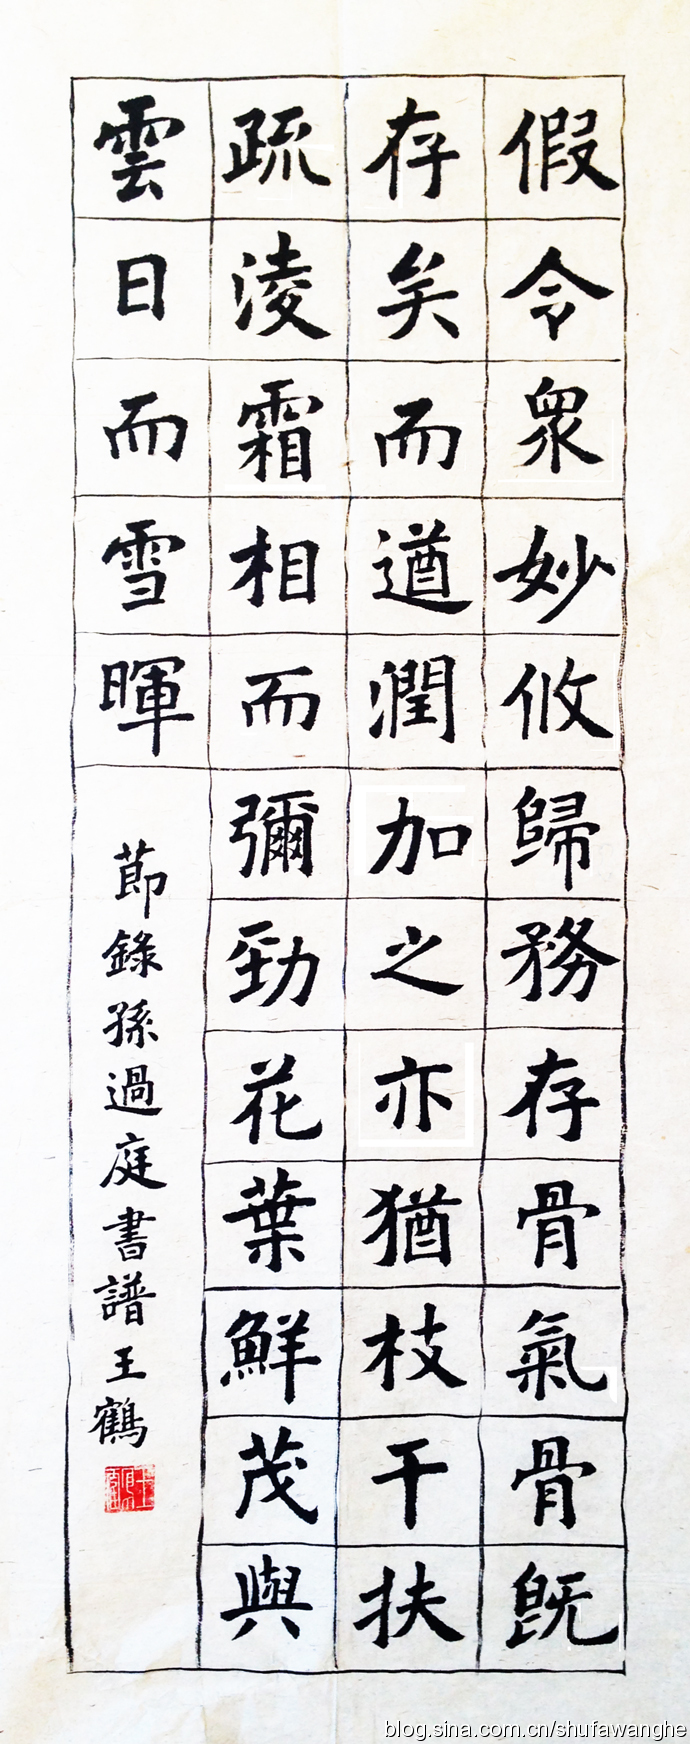 假令眾妙攸歸務存骨氣骨既
存矣而遒潤加之亦猶枝干扶
疏淩霜相而彌勁花葉鮮茂與
雲日而雪暉
節錄孫過庭書譜王鶴
blog.sina.com.cn/shufawanghe